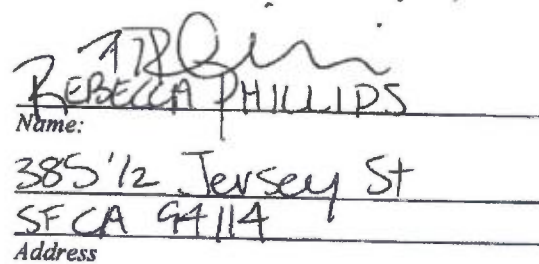 REBECCA PHILLIPS
Name:
385 1/2 Jersey St
SF CA 94114
Address